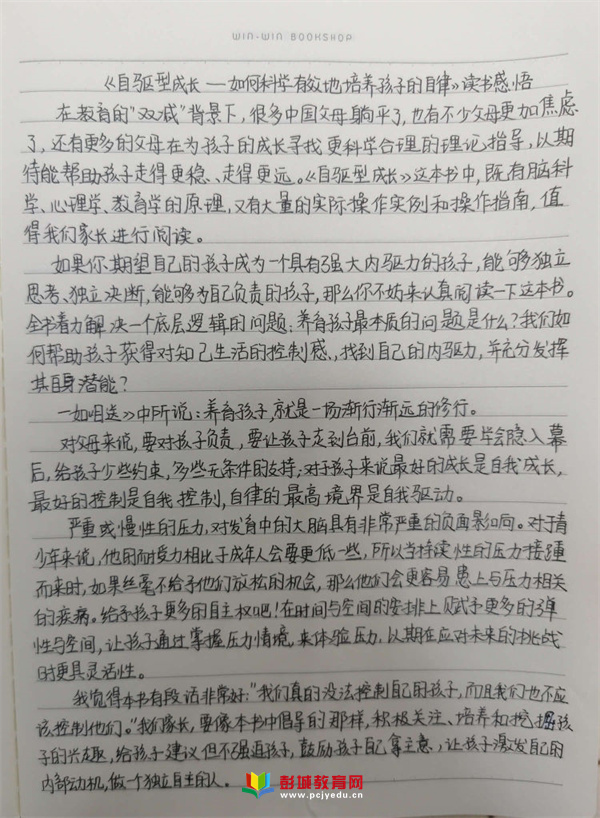 WIN-WIN BOOKSHOP
《自驱型成长—如何科学有效地培养孩子的自律》读书感悟
在教育的“双减”背景下，很多中国父母躺平了，也有不少父母更加焦虑
了，还有更多的父母在为孩子的成长寻找更科学合理的理论指导，以期
待能帮助孩子走得更稳、走得更远。《自驱型成长》这本书中，既有脑科
学、心理学、教育学的原理，又有大量的实际操作实例和操作指南，值
得我们家长进行阅读。
如果你期望自己的孩子成为一个具有强大内驱力的孩子，能够独立
思考、独立决断，能够为自己负责的孩子，那么你不妨来认真阅读一下这本书。
全书着力解决一个底层逻辑的问题：养育孩子最本质的问题是什么？我们如
何帮助孩子获得对知己生活的控制感、找到自己的内驱力，并充分发挥
其自身潜能？
一如《目送》中所说：养育孩子，就是一场渐行渐远的修行。
对父母来说，要对孩子负责，要让孩子走到台前，我们就需要学会隐入幕
后，给孩子少些约束，多些无条件的支持；对于孩子来说最好的成长是自我成长，
最好的控制是自我控制，自律的最高境界是自我驱动。
严重或慢性的压力，对发育中的大脑具有非常严重的负面影响。对于青
少年来说，他的耐受力相比于成年人会要更低一些，所以当持续性的压力接踵
而来时，如果丝毫不给予他们放松的机会，那么他们会更容易患上与压力相关
的疾病。给予孩子更多的自主权吧！在时间与空间的安排上赋予更多的弹
性与空间，让孩子通过掌握压力情境，来体验压力，以期在应对未来的挑战
时更具灵活性。
我觉得本书有段话非常好：“我们真的没法控制自己的孩子，而且我们也不应
该控制他们。”我们家长，要像本书中倡导的那样，积极关注、培养和挖掘孩
子的兴趣，给孩子建议但不强迫孩子，鼓励孩子自己拿主意，让孩子激发自己的
内部动机，做一个独立自主的人。
彭城教育网
www.pcjyedu.cn